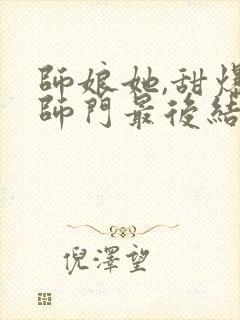 師娘她,甜爆
師門最後結
倪澤望